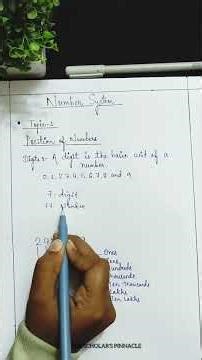 Number System
Topic-1
Position of Numbers
Digits: A digit is the basic unit of a
number.
0, 1, 2, 3, 4, 5, 6, 7, 8 and 9
7 digit
Number
Ones
Hundreds
Thousands
Ten Thousands
Lakhs
Ten Lakhs
SCHOLAR'S PINNACLE